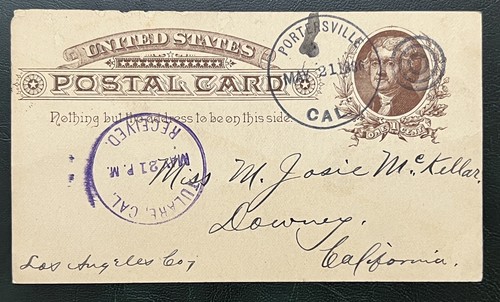 UNITED STATES
POSTAL CARD
Nothing but the address to be on this side.
PORTERSVILLE
MAY 21
CAL
ONE CENT
TULARE, CAL.
MAY 21 P.M.
RECEIVED.
Miss M. Josie McKellar.
Downey.
Los Angeles Co, California.